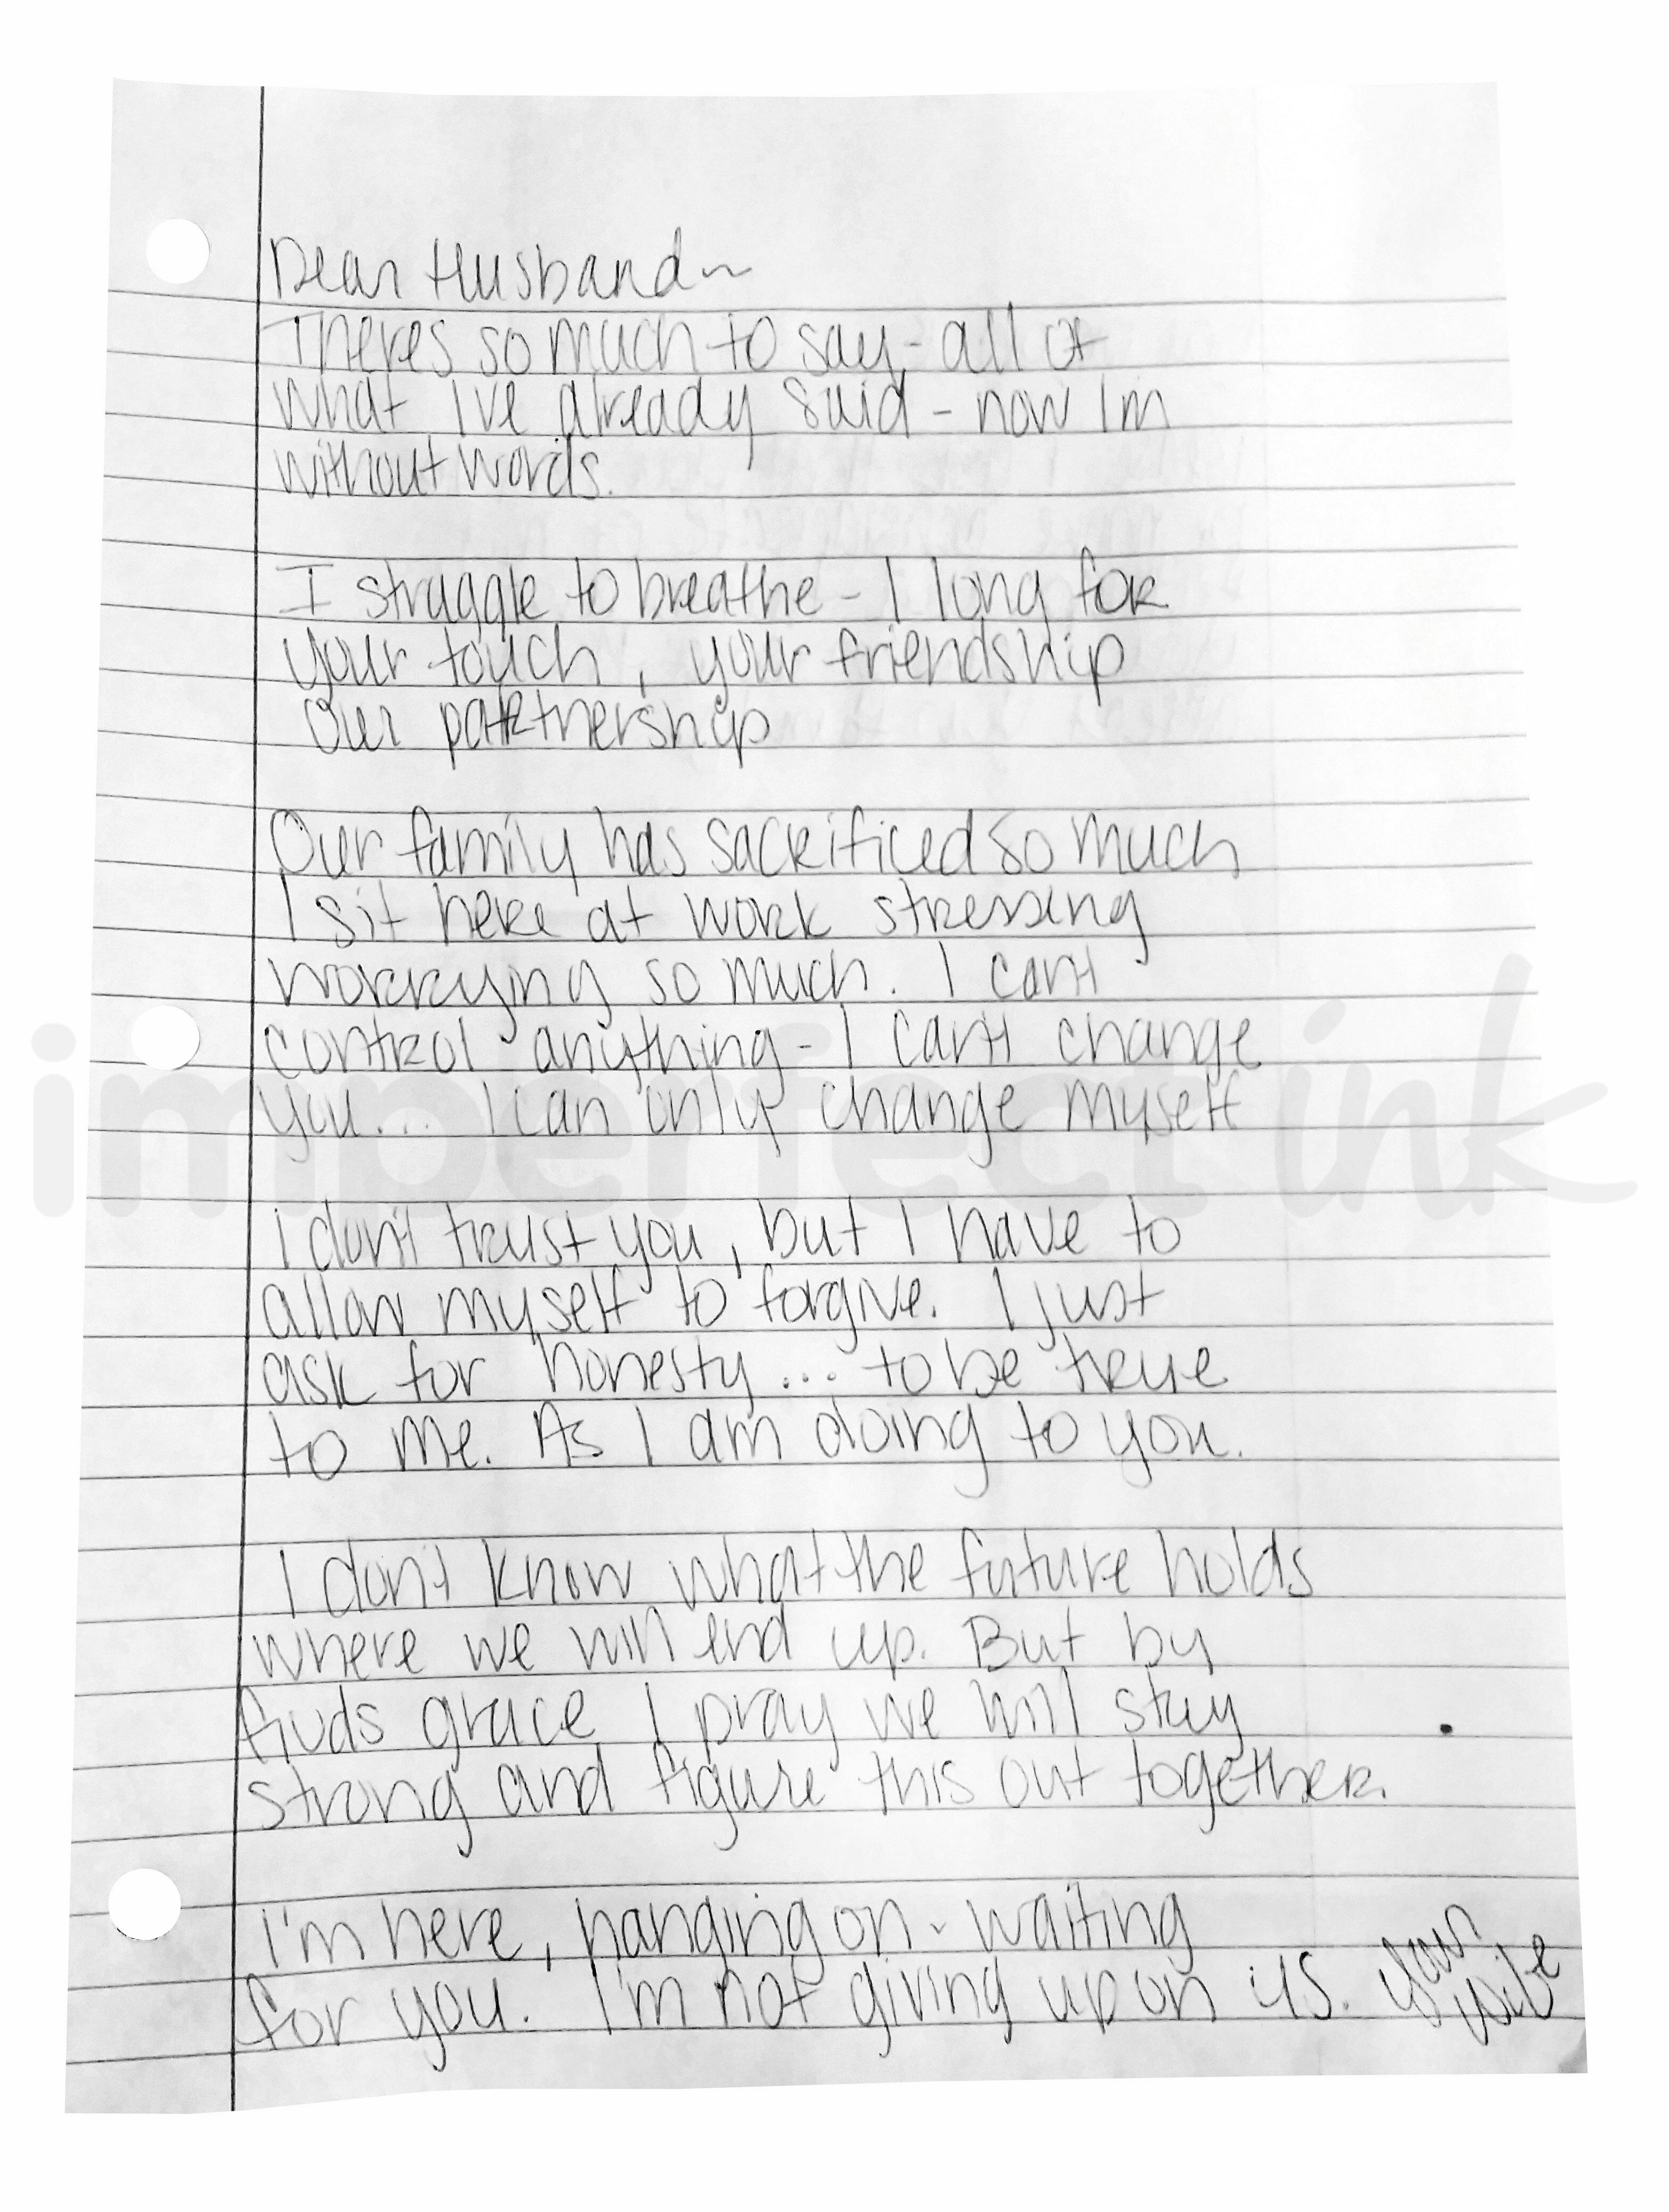 Dear Husband~
Theres so much to say - all of
what I've already said - now I'm
without words.
I struggle to breathe - I long for
your touch, your friendship
our partnership
Our family has sacrificed so much
I sit here at work stressing
worrying so much. I can't
control anything - I can't change
you... I can only change myself
I don't trust you, but I have to
allow myself to forgive. I just
ask for honesty... to be true
to me. As I am doing to you.
I don't know what the future holds
where we will end up. But by
Gods grace I pray we will stay
strong and figure this out together.
I'm here, hanging on - waiting
for you. I'm not giving up on us. Your
Wife
imperfect ink